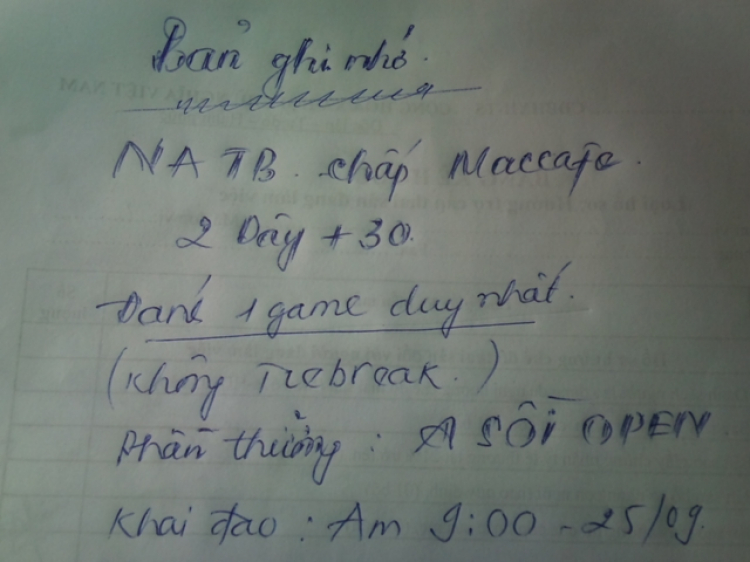 Bản ghi nhớ.
NATB. chấp Maccafe.
2 Dây + 30.
Đánh 1 game duy nhất.
(Không Tiebreak.)
Phần thưởng: A SỒI OPEN
Khai đao: Am 9:00 - 25/09.